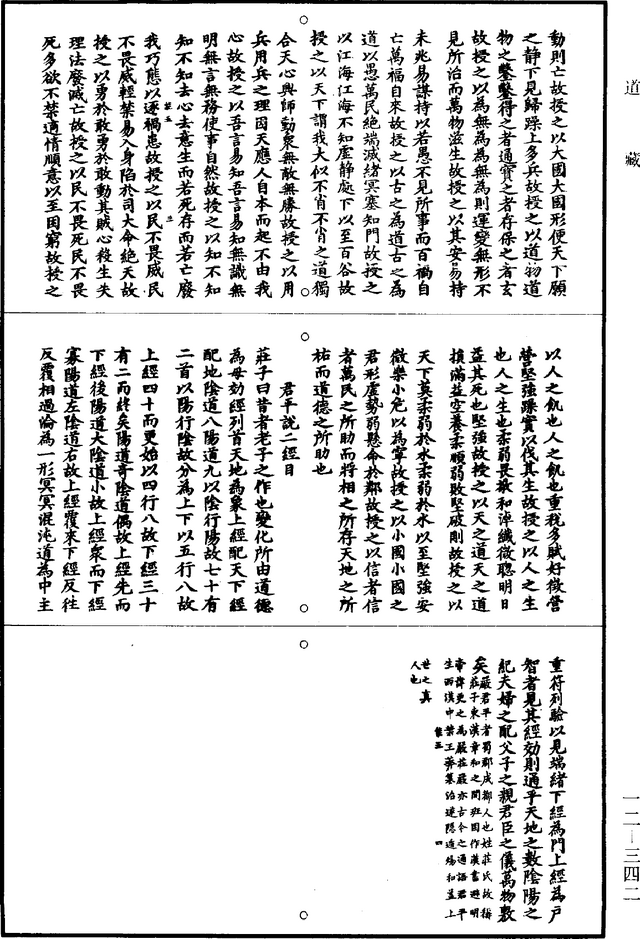 動則亡故授之以大國大國形便天下願
之靜下見歸躁上多兵故授之以道物道
物之鑿鑿得之者通寶之者存保之者玄
故授之以為無為為無為則運變無形不
見所治而萬物滋生故授之以其安易持
未兆易謀持以若愚不見所事而百禍自
亡萬福自來故授之以古之為道古之為
道以愚萬民絕端滅緒冥塞知門故授之
以江海江海不知虛靜處下以至百谷故
授之以天下謂我大似不肖不肖之道獨
合天心興師動衆無敵無勝故授之以用
兵用兵之理因天應人自本而起不由我
心故授之以吾言易知吾言易知無識無
明無言無務使事自然故授之以知不知
知不知去心去意生而若死存而若亡廢
我巧態以逐禍患故授之以民不畏威民
不畏威輕禁易入身陷於司大命絕天故
授之以勇於敢勇於敢動其賊心殺生失
理法廢滅亡故授之以民不畏死民不畏
死多欲不禁適情順意以至困窮故授之
以人之飢也人之飢也重稅多賦好徵營
營堅強躁實以伐其生故授之以人之生
也人之生也柔弱畏敬和淖纖微聰明日
益其死也堅強故授之以天之道天之道
損滿益空養柔順弱敗堅破剛故授之以
天下莫柔弱於水柔弱於水以至堅強安
微樂小危以為寧故授之以小國小國之
君形虛勢弱懸命於鄰故授之以信者信
者萬民之所助而將相之所存天地之所
祐而道德之所助也
君平說二經目
莊子曰昔者老子之作也變化所由道德
為母効經列首天地為象上經配天下經
配地陰道八陽道九以陰行陽故七十有
二首以陽行陰故分為上下以五行八故
上經四十而更始以四行八故下經三十
有二而終矣陽道奇陰道偶故上經先而
下經後陽道大陰道小故上經衆而下經
寡陽道左陰道右故上經覆來下經反往
反覆相過淪為一形冥冥混沌道為中主
重符列驗以見端緒下經為門上經為戶
智者見其經効則通乎天地之數陰陽之
紀夫婦之配父子之親君臣之儀萬物敷
矣嚴君平者蜀郡成都人也姓莊氏故稱
莊子東漢章和之間班固作漢書避明
帝諱更之為嚴莊嚴亦古今之通語君平
生西漢中葉王莽篡治遂隱遁煬和蓋上
世之真
人也
道藏
一二—三四二